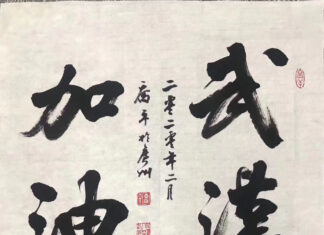 武漢
二零二零年二月
於廣州
加油